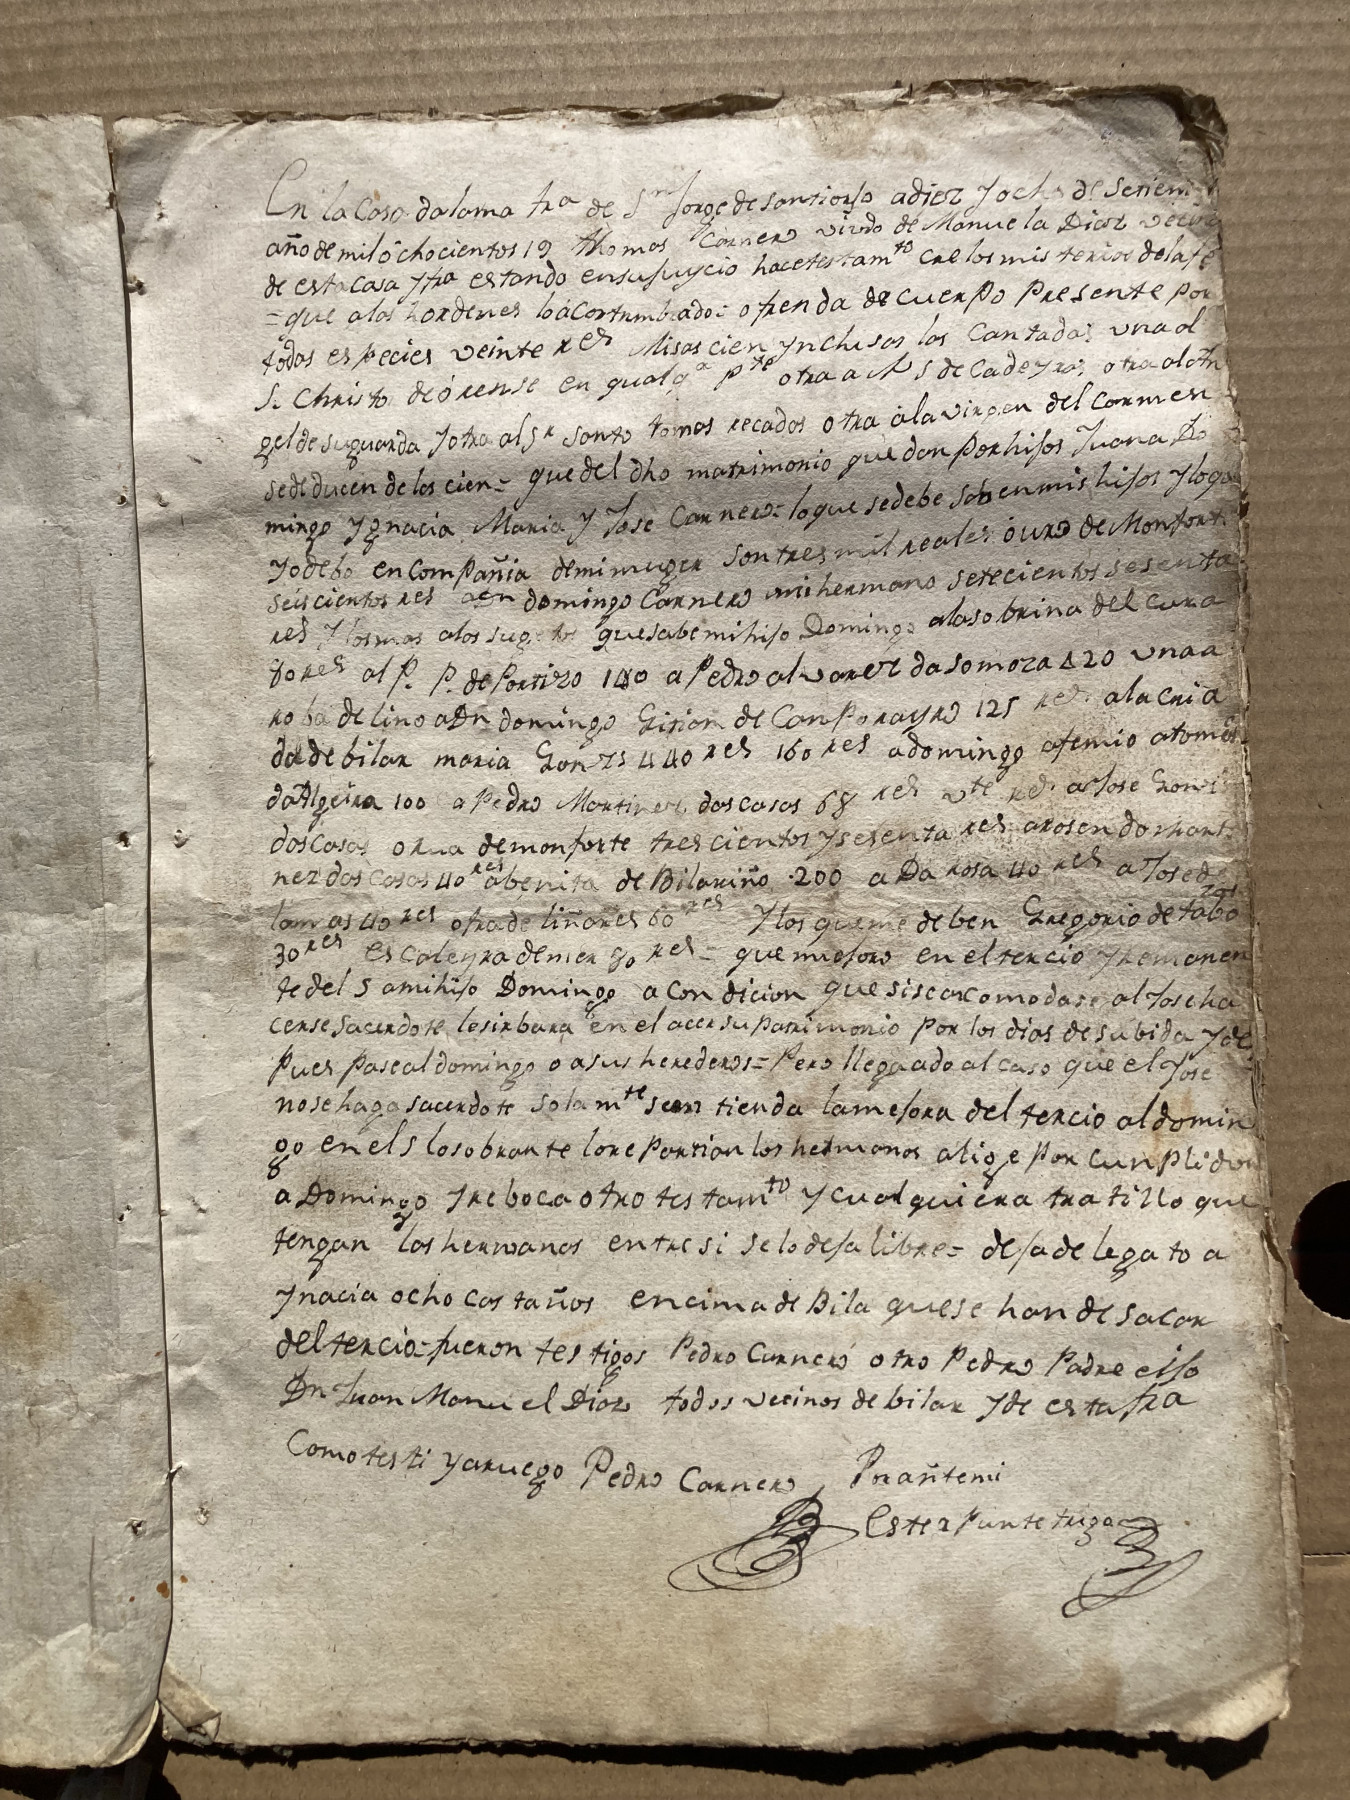 En la Casa dalama fra de Sn Jorge de santiorjo a diez y ocho de Setiem
año de mil ochocientos 19 thomas Carnero viudo de Manuela Diaz vecino
de esta Casa y fra estando en su juycio hace testamto cre los misterios de la fe
= que a las hordenes lo acostumbrado = ofrenda de cuerpo presente por
todas especies veinte res Misas cien ynclusas las Cantadas una al
S. Christo de órense en qualqa pte otra a N S de Cadeyras otra al An
gel de su guarda y otra al Sr santo tomas recados otra a la virgen del Carmen
se deducen de las cien = que del dho matrimonio quedan por hijos Juana Do
mingo ygnacia Maria y Jose Carnero = lo que se debe saben mis hijos y lo que
yo debo en compañia de mi muger son tres mil reales ó uro de Monfort
seis cientos res a Dn domingo Carnero mi hermano setecientos sesenta
res y los mas a los sugetos que sabe mi hijo Domingo a la sobrina del cura
80 res al P. P. de Portizo 180 a Pedro alvarez da somoza 420 una a
roba de lino a Dn domingo Grison de Camporayro 125 res a la cria
da de bilar maria Gonzs 440 res 160 res a domingo afemio a tomas
da Algeira 100 a Pedro Martinez das casas 68 res vte res a Jose Gonz
das Casas o rua de monforte trescientos y sesenta res a rosendo mart
nez das casas 40 res a benita de Bilariño 200 a Da rosa 40 res a Jose de
lamas 40 res otra de liñares 60 res y los que me deben Gregorio de tabo
30 res es caleyra de mer 80 res = que mejoro en el tercio y remanen
te del 5 a mi hijo Domingo a condicion que si se acomodase al Jose ha
cerse sacerdote le sirbara en el acer su patrimonio por los dias de su bida y des
pues pase al domingo o a sus herederos = Pero llegado al caso que el Jose
no se haga sacerdote solamte se en tienda la mejora del tercio al domin
go en el 5 lo sobrante lo repartian los hermanos alige por cumplidor
a Domingo y reboca otro testamto y cualquiera tratillo que
tengan los hermanos entre si se lo deja libre = deja de legato a
ynacia ocho castaños encima de Bila que se han de sacar
del tercio = fueron testigos Pedro Carnero otro Pedro Padre e ijo
Dn Juan Manuel Diaz todos vecinos de bilar y de esta fra
Como testi y a ruego Pedro Carnero Por añte mi
Estez Puntetrigo